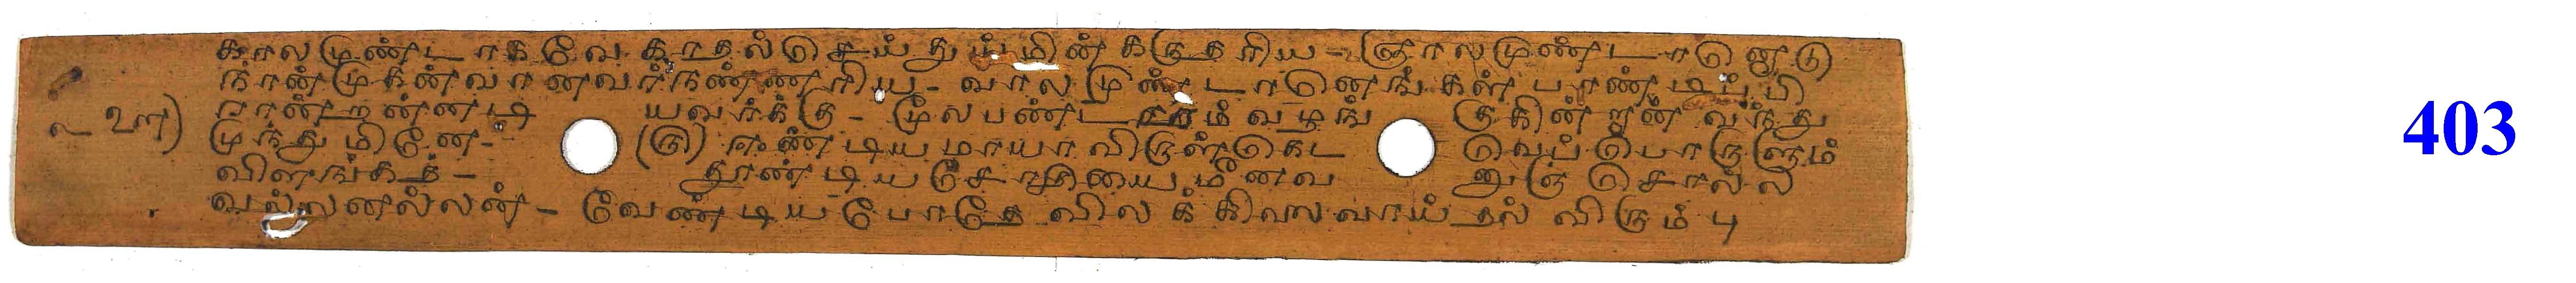 காலமுண்டாகவே காதல்செய்துய்மின் கருதரிய - ஞாலமுண்டானொடு
நான்முகன்வானவர்நண்ணரிய - வாலமுண்டானெங்கள் பாண்டிப்பி
ரான்றன்னடி யவர்க்கு - மூலபண்டாரம் வழங் குகின்றான் வந்து
முந்துமினே - (௫) ஈண்டியமாயா விருள்கெட வெப்பொருளும்
விளங்கத் - தூண்டியசோதியை மீனவ னுஞ் சொல்ல
வல்லனல்லன் - வேண்டியபோதே விலக்கிலைவாய்தல் விரும்பு
403